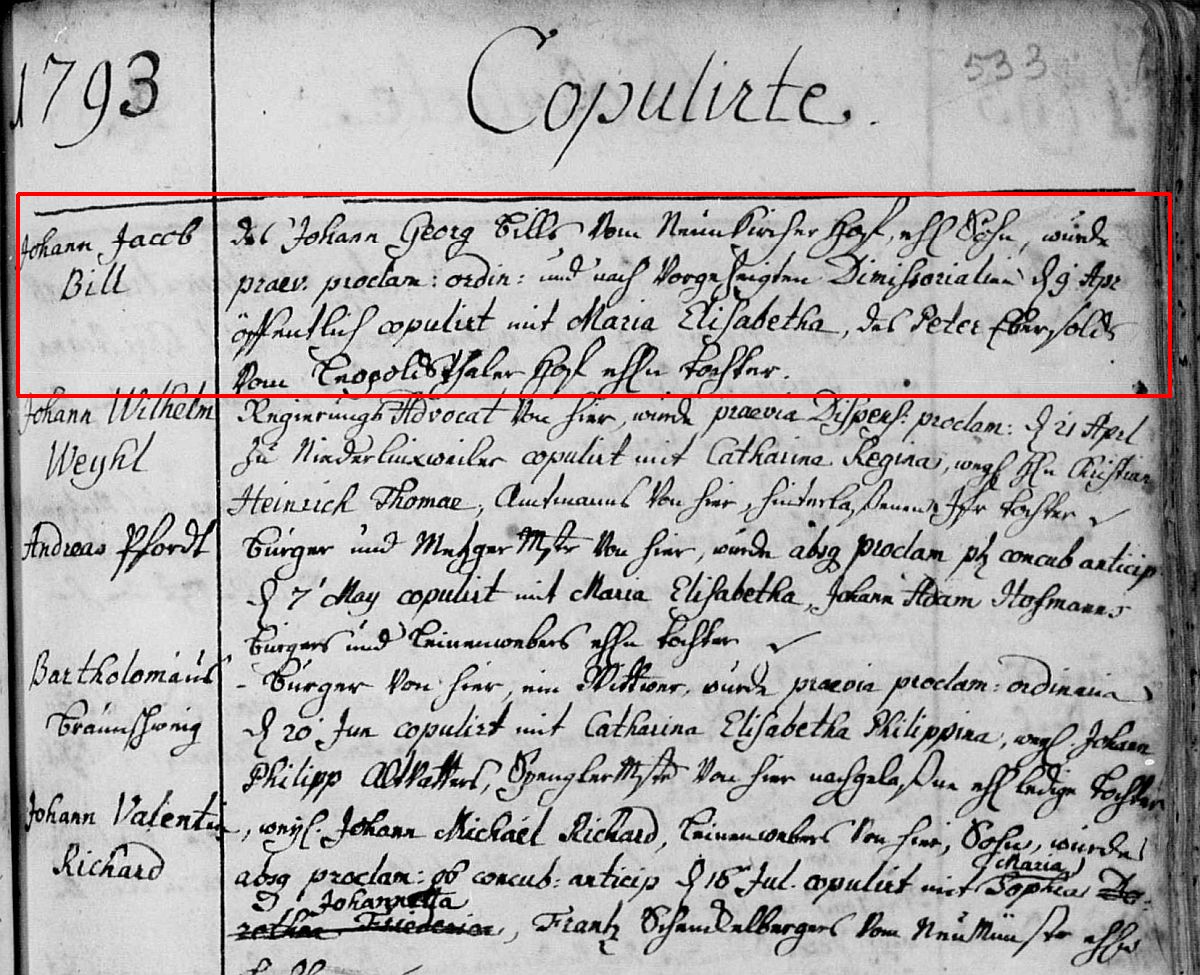 1793 Copulirte. 533
Johann Jacob des Johann Georg Bills vom Neunkircher Hof, ehl Sohn, wurde
Bill praev. proclam: ordin: und nach vorgezeigten Dimissorialien d 9 Apr
öffentlich copulirt mit Maria Elisabetha, des Peter Ebersolds
vom Leopoldsthaler Hof ehln tochter.
Johann Wilhelm Regierungs Advocat von hier, wurde praevia Dispens: proclam: d 21 Apl
Weyhl zu Niederlinxweiler copulirt mit Catharina Regina, weyl Hn Christian
Heinrich Thomae, Amtmanns von hier, hinterlaßenen Jfr tochter
Andreas Pfordt Burger und Metzger Mstr von hier, wurde absq proclam concub anticip
d 7 May copulirt mit Maria Elisabetha, Johann Adam Hofmanns
Burgers und Leinenwebers ehln tochter
Bartholomäus - Burger von hier, ein Wittwer, wurde praevia proclam: ordinaria
Braunschweig d 20 Jun copulirt mit Catharina Elisabetha Philippina, weyl Johann
Philipp Spengler Mstr von hier nachgelaßne ehl ledige tochter
Johann Valentin, weyl. Johann Michael Richard, Leinenwebers von hier, Sohn, wurde
Maria
Richard absq proclam: ob concub: anticip d 16 Jul. copulirt mit Sophia Do-
Johannetta
rothea Friederica, Frantz Schenckelbergers vom Neu Münster ehln